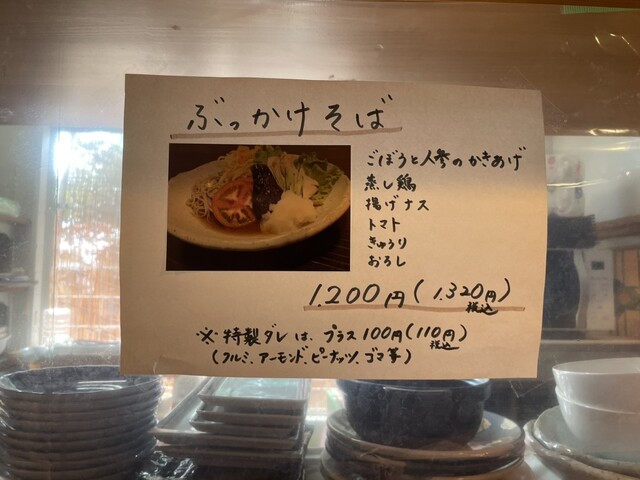 ぶっかけそば
ごぼうと人参のかきあげ
蒸し鶏
揚げナス
トマト
きゅうり
おろし
1200円(1,320円)
税込
※特製ダレは、プラス100円(110円)
税込
(クルミ、アーモンド、ピーナッツ、ゴマ等)